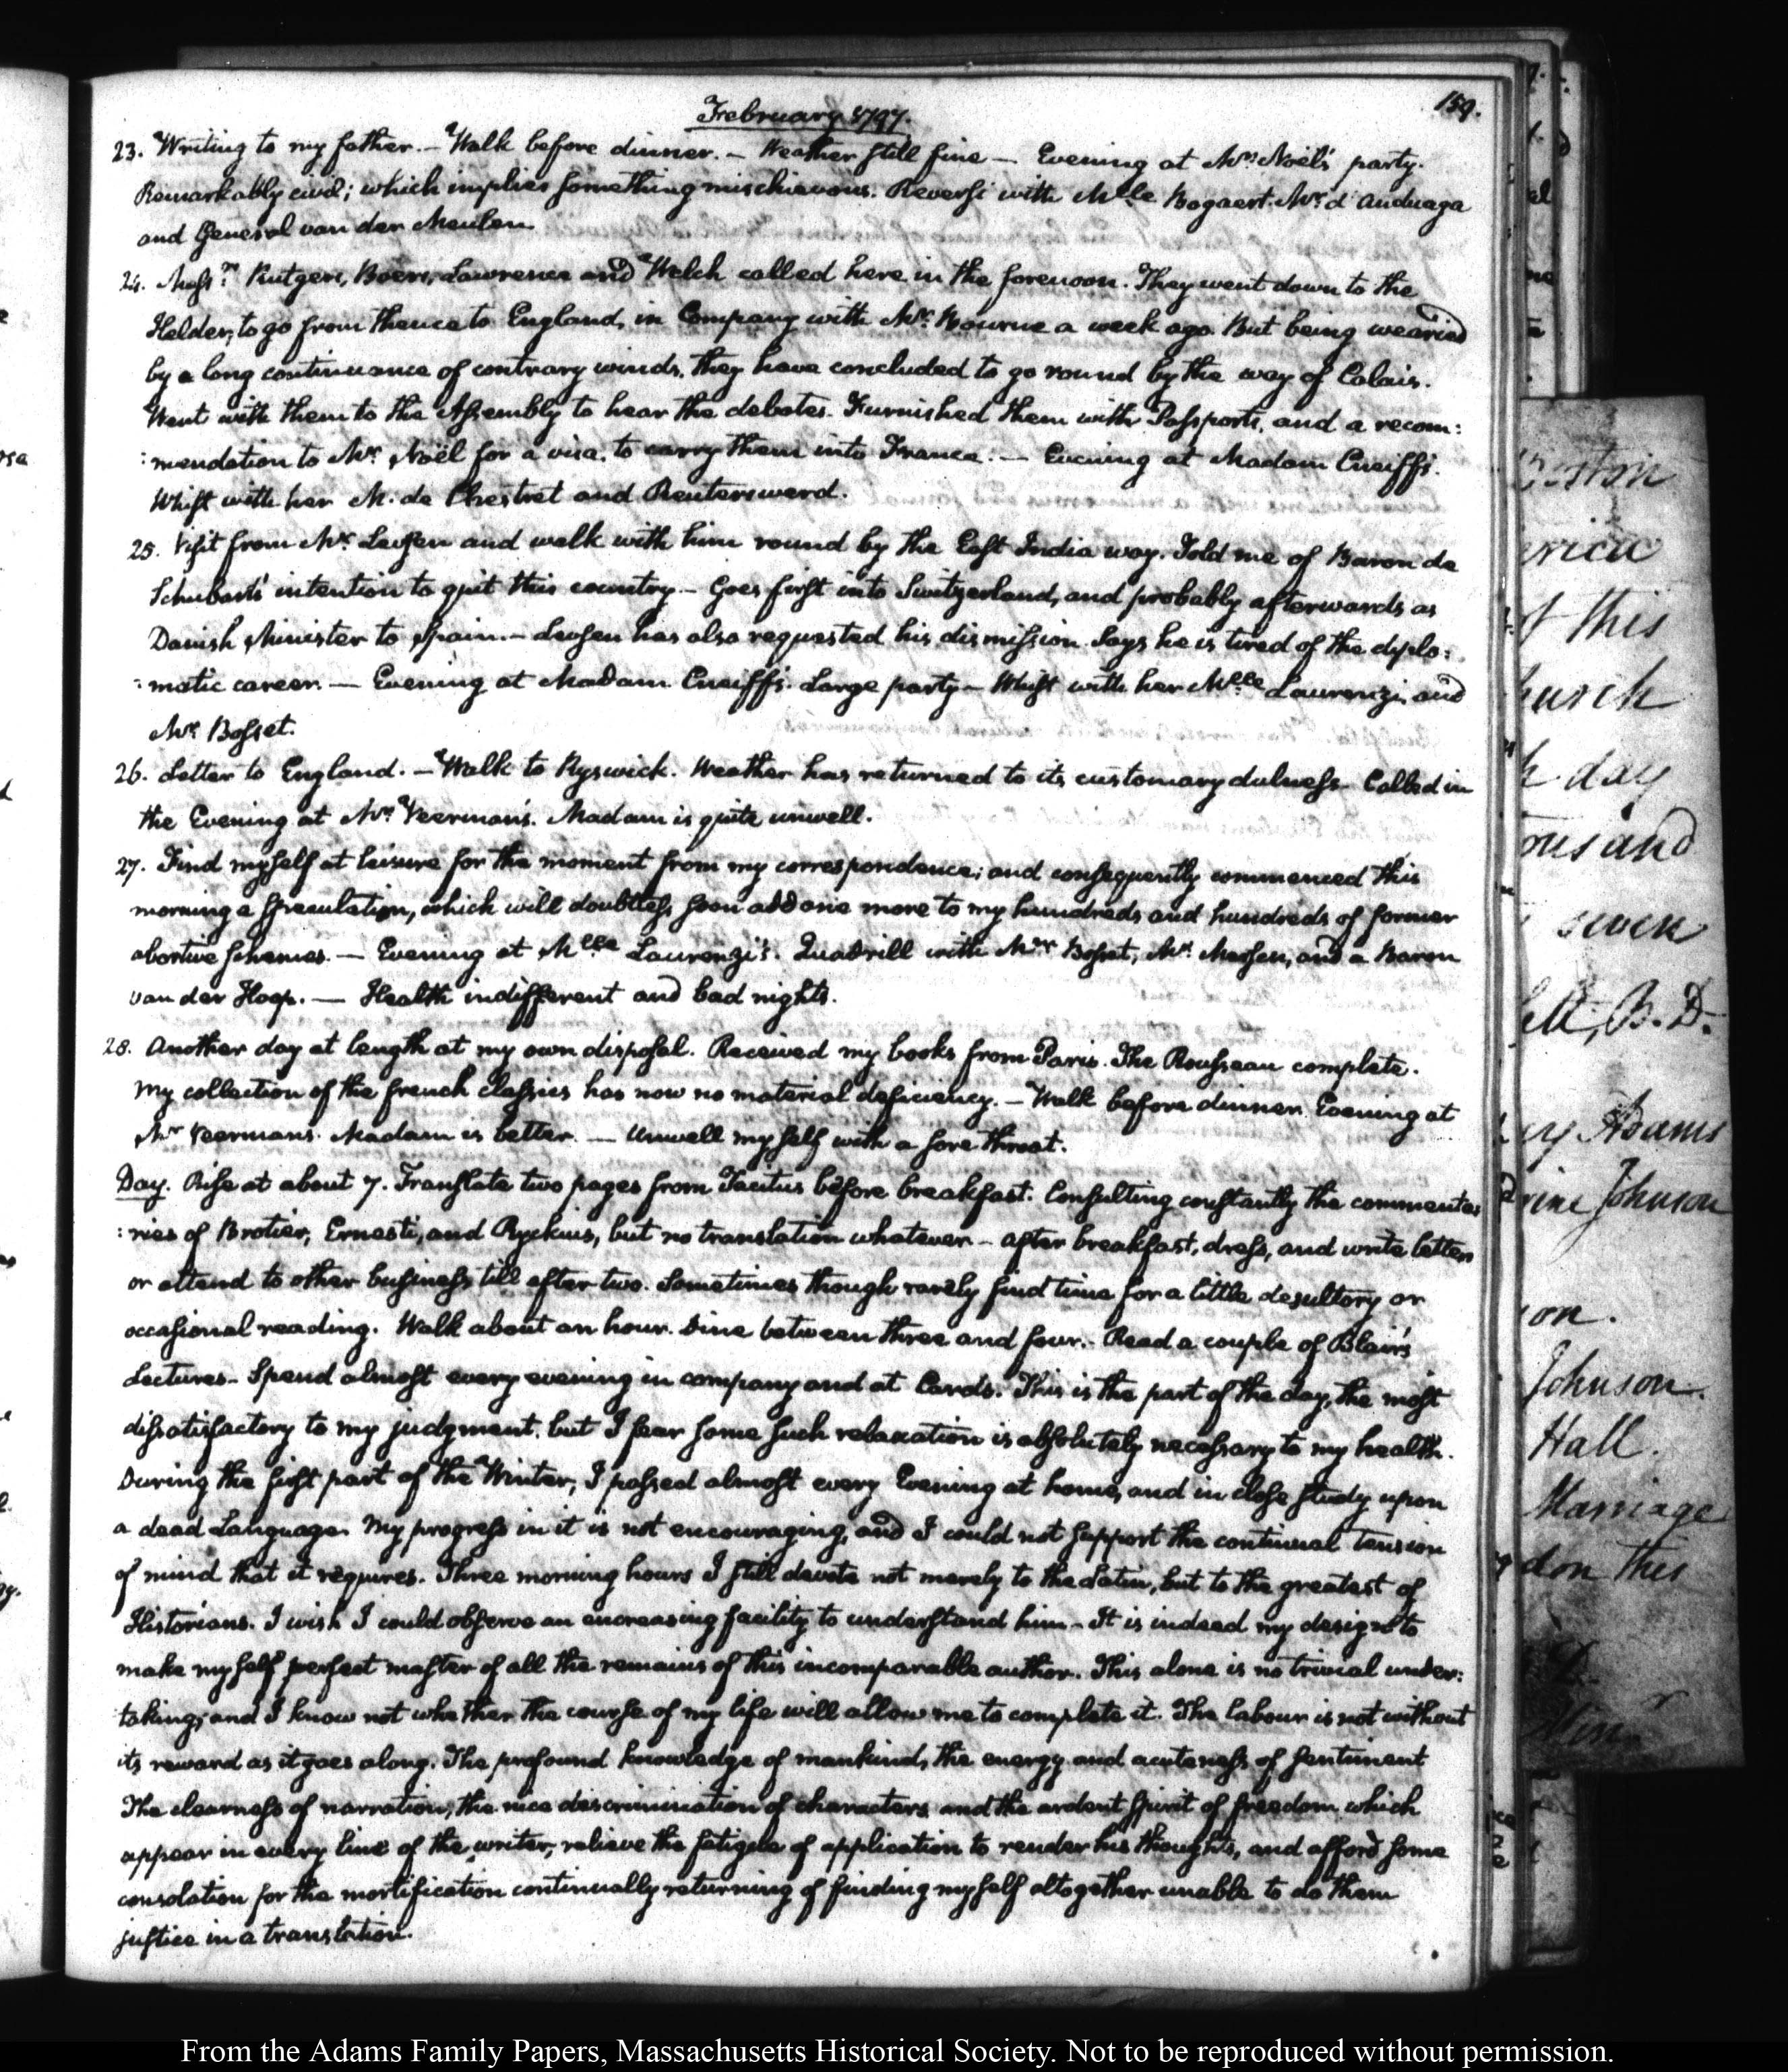 159.
February 1797.
23. Writing to my father. — Walk before dinner. — Weather still fine — Evening at Mr: Noël's party.
Remarkably civil; which implies something mischievous. Reversi with Mlle Bogaert. Mr. d'Anduaga
and General van der Meulen
24. Messrs. Rutgers, Boers, Lawrence and Welch called here in the forenoon. They went down to the
Helder, to go from thence to England, in Company with Mr: Bourne a week ago. But being wearied
by a long continuance of contrary winds, they have concluded to go round by the way of Calais.
Went with them to the Assembly to hear the debates. Furnished them with Passports, and a recom:
:mendation to Mr: Noël for a visa, to carry them into France. — Evening at Madam Cneiffs.
Whist with her M. de Chestret and Reutersward.
25. Visit from Mr. Levsen and walk with him round by the East India way. Told me of Baron de
Schubart's intention to quit this country — Goes first into Switzerland, and probably afterwards as
Danish Minister to Spain. — Levsen has also requested his dismission. Says he is tired of the diplo:
:matic career. — Evening at Madam Cneiffs. Large party — Whist with her Mlle Laurenzi, and
Mr. Bosset.
26. Letter to England. — Walk to Ryswick. Weather has returned to its customary dulness. Called in
the Evening at Mr. Veerman's. Madam is quite unwell.
27. Find myself at leisure for the moment from my correspondence; and consequently commenced this
morning a speculation, which will doubtless soon add one more to my hundreds and hundreds of former
abortive schemes. — Evening at Mlle Laurenzi's. Quadrill with Mr. Bosset, Mr. and a Baron
van der Hoop. — Health indifferent and bad nights.
28. Another day at length at my own disposal. Received my books from Paris. The Rousseau complete.
My collection of the french classics has now no material deficiency. — Walk before dinner. Evening at
Mr Veermans. Madam is better. — Unwell myself with a sore throat.
Day. Rise at about 7. Translate two pages from Tacitus before breakfast. Consulting constantly the commenta:
:ries of Brotier, Ernesti, and Ryckius, but no translation whatever — after breakfast, dress, and write letters
or attend to other business till after two. Sometimes though rarely find time for a little desultory or
occasional reading. Walk about an hour. Dine between three and four. — Read a couple of Blair's
Lectures — Spend almost every evening in company and at Cards. This is the part of the day, the most
dissatisfactory to my judgment, but I fear some such relaxation is absolutely necessary to my health.
During the first part of the Winter, I passed almost every Evening at home, and in close study upon
a dead Language. My progress in it is not encouraging, and I could not support the continual tension
of mind that it requires. Three morning hours I still devote not merely to the Latin, but to the greatest of
Historians. I wish I could observe an encreasing facility to understand him — It is indeed my design to
make myself perfect master of all the remains of this incomparable author. This alone is no trivial under:
taking, and I know not whether the course of my life will allow me to complete it. The labour is not without
its reward as it goes along. The profound knowledge of mankind, the energy and acuteness of sentiment
The clearness of narration, the nice descrimination of characters and the ardent spirit of freedom which
appear in every line of the writer, relieve the fatigue of application to render his thoughts, and afford some
consolation for the mortification continually returning of finding myself altogether unable to do them
justice in a translation.
this
day
B. D.
Adams
Johnson
on.
Johnson.
Hall.
Marriage
this
From the Adams Family Papers, Massachusetts Historical Society. Not to be reproduced without permission.